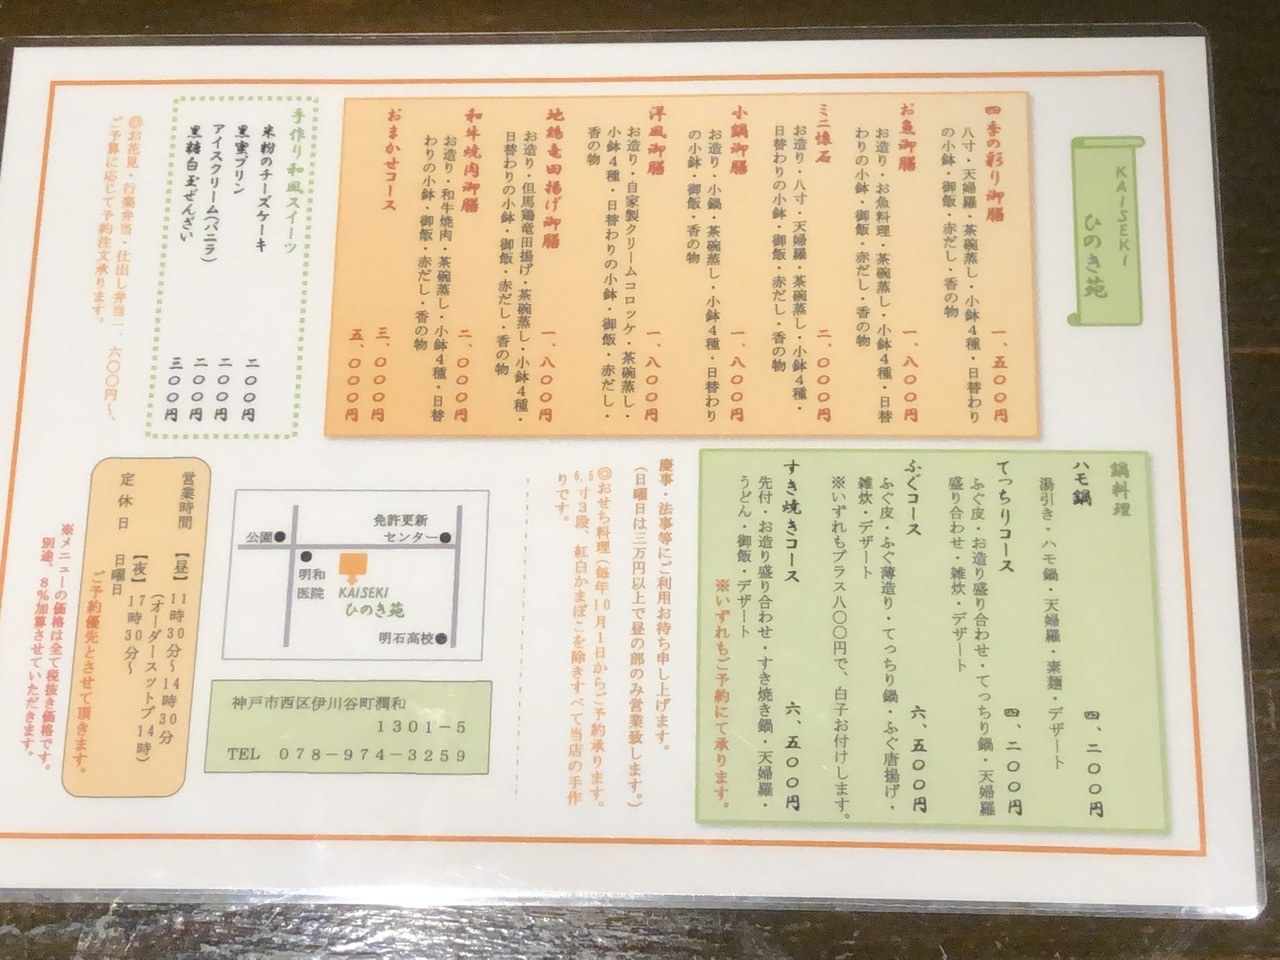 KAISEKI
ひのき苑
四季の彩り御膳 一、五〇〇円
八寸・天婦羅・茶碗蒸し・小鉢4種・日替わり
の小鉢・御飯・赤だし・香の物
お魚御膳 一、八〇〇円
お造り・お魚料理・茶碗蒸し・小鉢4種・日替
わりの小鉢・御飯・赤だし・香の物
ミニ懐石 二、〇〇〇円
お造り・八寸・天婦羅・茶碗蒸し・小鉢4種・
日替わりの小鉢・御飯・赤だし・香の物
小鍋御膳 一、八〇〇円
お造り・小鍋・茶碗蒸し・小鉢4種・日替わり
の小鉢・御飯・香の物
洋風御膳 一、八〇〇円
お造り・自家製クリームコロッケ・茶碗蒸し・
小鉢4種・日替わりの小鉢・御飯・赤だし・
香の物
地鶏竜田揚げ御膳 一、八〇〇円
お造り・但馬鶏竜田揚げ・茶碗蒸し・小鉢4種・
日替わりの小鉢・御飯・赤だし・香の物
和牛焼肉御膳 二、〇〇〇円
お造り・和牛焼肉・茶碗蒸し・小鉢4種・日替
わりの小鉢・御飯・赤だし・香の物
おまかせコース 三、〇〇〇円
五、〇〇〇円
手作り和風スイーツ
米粉のチーズケーキ 二〇〇円
黒蜜プリン 二〇〇円
アイスクリーム(バニラ) 二〇〇円
黒糖白玉ぜんざい 三〇〇円
◎お花見・行楽弁当・仕出し弁当一、六〇〇円〜、
ご予算に応じて予約注文承ります。
鍋料理
ハモ鍋 四、二〇〇円
湯引き・ハモ鍋・天婦羅・素麺・デザート
てっちりコース 四、二〇〇円
ふぐ皮・お造り盛り合わせ・てっちり鍋・天婦羅
盛り合わせ・雑炊・デザート
ふぐコース 六、五〇〇円
ふぐ皮・ふぐ薄造り・てっちり鍋・ふぐ唐揚げ・
雑炊・デザート
※いずれもプラス八〇〇円で、白子お付けします。
すき焼きコース 六、五〇〇円
先付・お造り盛り合わせ・すき焼き鍋・天婦羅・
うどん・御飯・デザート
※いずれもご予約にて承ります。
慶事・法事等にご利用お待ち申し上げます。
(日曜日は三万円以上で昼の部のみ営業致します。)
◎おせち料理(毎年10月1日からご予約承ります。
6.5寸3段、紅白かまぼこを除きすべて当店の手作
りです。
免許更新
センター
公園
明和
医院
KAISEKI
ひのき苑
明石高校
神戸市西区伊川谷町潤和
1301-5
TEL 078-974-3259
営業時間 【昼】11時30分〜14時30分
(オーダーストップ14時)
【夜】17時30分〜
定休日 日曜日
ご予約優先とさせて頂きます。
※メニューの価格は全て税抜き価格です。
別途、8%加算させていただきます。